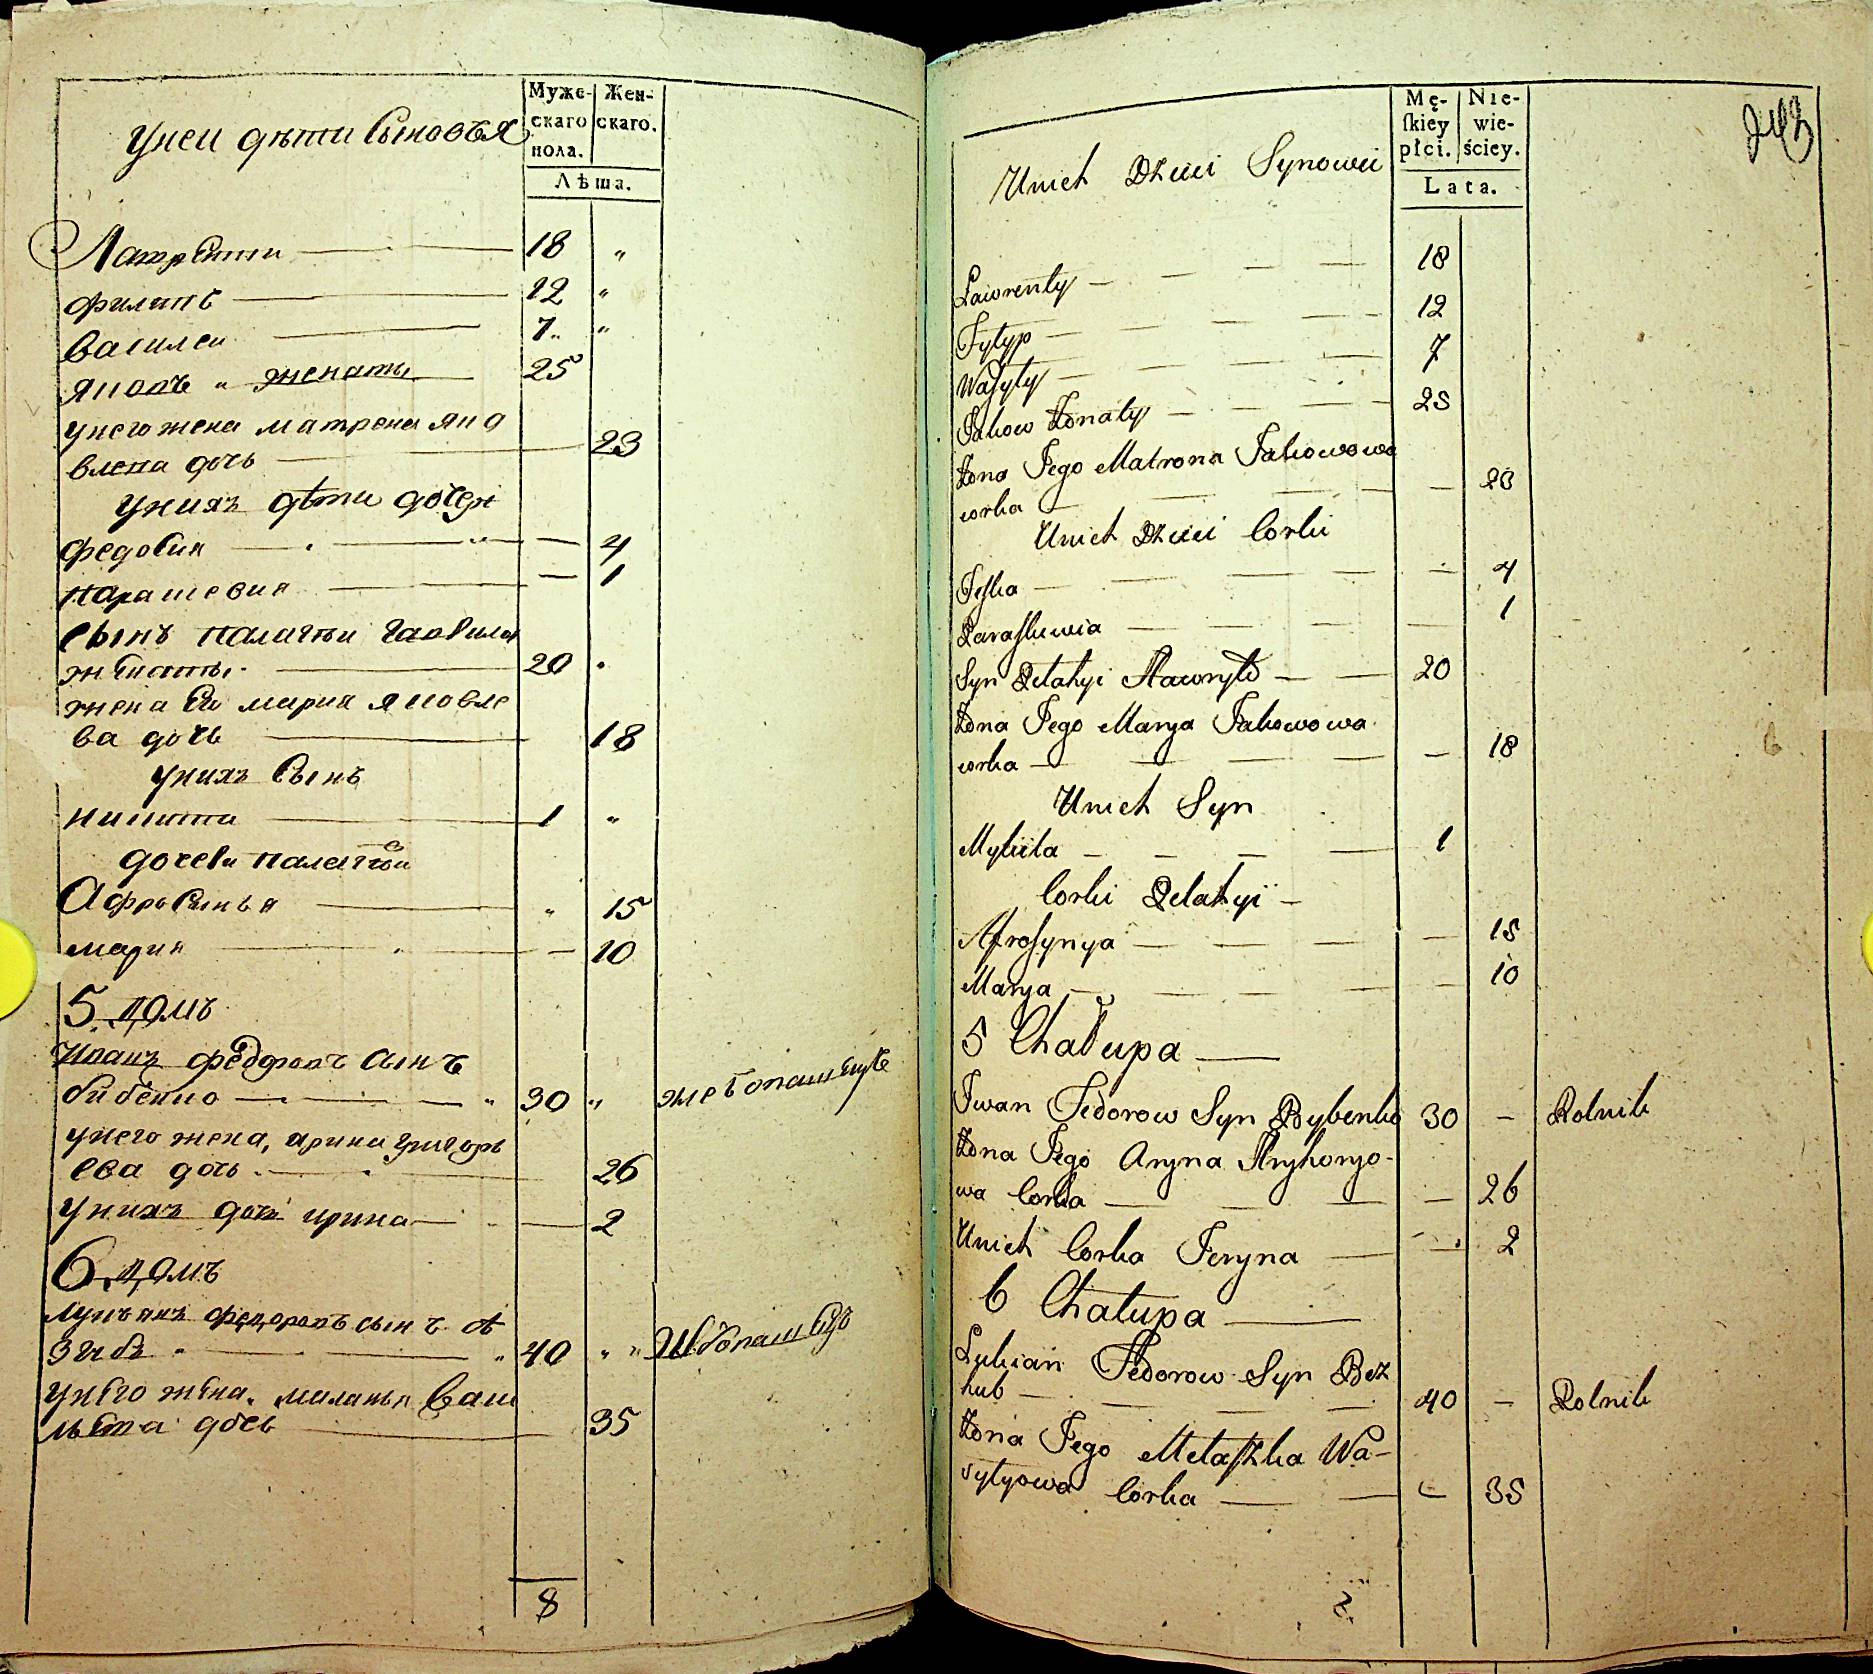 Муже-
скаго
пола.
Жен-
скаго.
Лѣта.
унеи дѣти Сыновья
Лаврентии 18 „
филипъ 12 „
василеи 7 „
яковъ „ женаты 25
унегожена матрена яко
влева дочь 23
унихъ дѣти дочери
федосия 4
парасковия 1
сынъ палагѣи гаврило
женаты 20
жена Его мария яковле
ва дочь 18
унихъ Сынъ
никита 1 „
дочери палагѣи
Афросинья „ 15
мария 10
5. домъ
Иванъ федоровъ сынъ
бибенко „ 30 „ хлебопашецъ
унего жена, арина григорь
ева дочь 26
унихъ дочь ирина 2
6. домъ
лукьянъ федоровъ сынъ бе
згубъ „ 40 „ „ хлебопашецъ
унего жена. маланья васи
льева дочь 35
8
Mę-
ſkiey
płci.
Nie-
wie-
ściey.
Lata.
243
Unich Dzieci Synowie
Lawrenty 18
Fylyp 12
Waſyly 7
Jakow Żonaty 25
Żona Jego Matrona Jakowowa
corka 23
Unich Dzieci Corki
Feſka 4
Paraſkuwia 1
Syn Pelahyi Hawryło 20
Żona Jego Marya Jakowowa
corka 18
Unich Syn
Mykita 1
Corki Pelahyi
Afroſynya 15
Marya 10
5 Chałupa
Iwan Fedorow Syn Bybenko 30 Rolnik
Żona Jego Aryna Hryhoryo-
wa Corka 26
Unich Corka Jeryna 2
6 Chałupa
Lukian Fedorow Syn Bez
hub 40 Rolnik
Żona Jego Melaſzka Wa-
sylyowa Corka 35